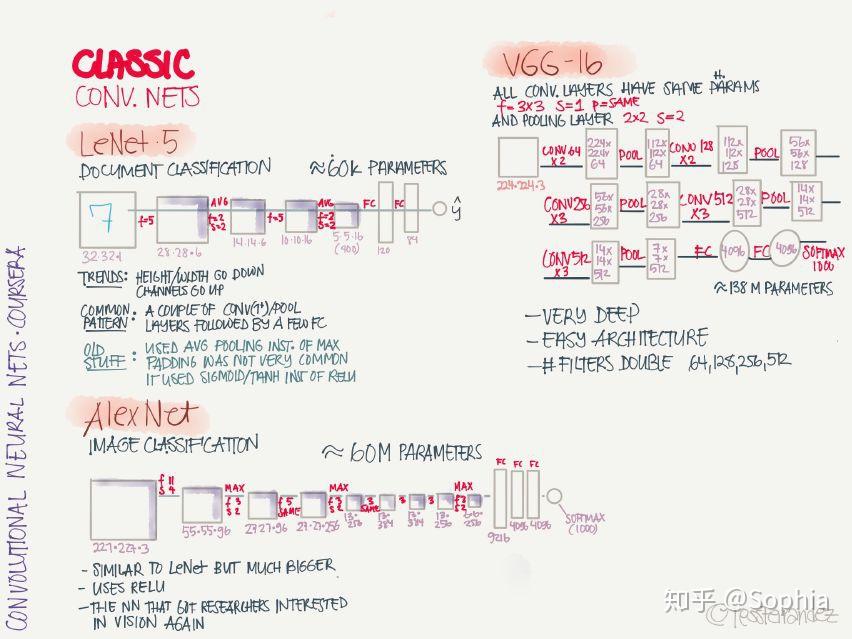 CLASSIC
CONV. NETS
LeNet-5
DOCUMENT CLASSIFICATION ≈60K PARAMETERS
7
f=5
AVG
f=2
s=2
f=5
AVG
f=2
s=2
FC
FC
ŷ
32·32·1
28·28·6
14·14·6
10·10·16
5·5·16
(400)
120
84
TRENDS: HEIGHT/WIDTH GO DOWN
CHANNELS GO UP
COMMON PATTERN: A COUPLE OF CONV(1+)/POOL
LAYERS FOLLOWED BY A FEW FC
OLD STUFF: USED AVG POOLING INST. OF MAX
PADDING WAS NOT VERY COMMON
IT USED SIGMOID/TANH INST OF RELU
AlexNet
IMAGE CLASSIFICATION ≈ 60M PARAMETERS
f 11
s 4
MAX
f 3
s 2
f 5
SAME
MAX
f 3
s 2
3
SAME
3
3
MAX
f 3
s 2
FC
FC
FC
227·227·3
55·55·96
27·27·96
27·27·256
13·
256
13·
384
13·
384
13·
256
6·6·
256
9216
4096
4096
SOFTMAX
(1000)
- SIMILAR TO LeNet BUT MUCH BIGGER
- USES RELU
- THE NN THAT GOT RESEARCHERS INTERESTED
IN VISION AGAIN
VGG-16
ALL CONV. LAYERS HAVE SAME PARAMS
f=3x3 s=1 p=SAME
AND POOLING LAYER 2x2 s=2
224·224·3
CONV 64
x2
224x
224x
64
POOL
112x
112x
64
CONV 128
x2
112x
112x
128
POOL
56x
56x
128
CONV 256
x3
56x
56x
256
POOL
28x
28x
256
CONV 512
x3
28x
28x
512
POOL
14x
14x
512
CONV 512
x3
14x
14x
512
POOL
7x
7x
512
FC
4096
FC
4096
SOFTMAX
1000
≈138 M PARAMETERS
- VERY DEEP
- EASY ARCHITECTURE
- # FILTERS DOUBLE 64,128,256,512
CONVOLUTIONAL NEURAL NETS · COURSERA
知乎 @Sophia